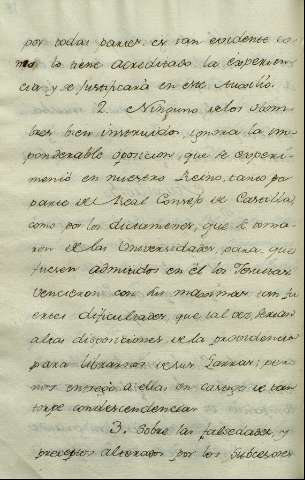 por todas partes: es tan evidente co-
mo lo tiene acreditado la experien-
cia, y se justificará en este Auxilio.
2. Ninguno de los Hom-
bres bien instruidos, ignora la im-
ponderable oposicion, que se experi-
mentó en nuestro Reino, tanto por
parte del Real Consejo de Castilla,
como por los dictamenes, que se toma-
ron de las Universidades, para que
fuesen admitidos en él los Jesuitas.
Vencieron con sus maximas tan fu-
ertes dificultades, que tal vez serian
altas disposiciones de la providencia
para librarnos de sus Garras; pero
nos entregó a ellas en castigo de tan
torpe condescendencia.
3. Sobre las falsedades y
preceptos alterados por los subcesores